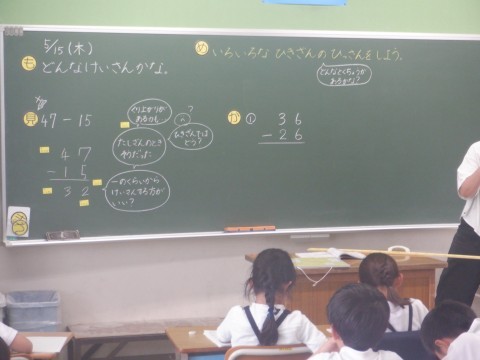 5/15(木)
も どんなけいさんかな。
め いろいろな ひきざんの ひっさんをしよう。
どんなとくちょうが
あるかな?
見 47-15
くり上がりが
あるかも
?
たしざんのとき
そうだった
ひきざんでは
どう?
47
-15
32
一のくらいから
けいさんする方が
いい?
か ① 36
-26